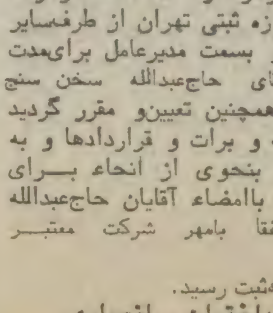 ره ثبتی تهران از طرف‌سایر
بسمت مدیرعامل برای‌مدت
ای حاج‌عبدالله سخن سنج
همچنین تعیین‌و مقرر گردید
و برات و قراردادها و به
بنحوی از انحاء برای
باامضاء آقایان حاج‌عبدالله
فقا بامهر شرکت معتبر
ثبت رسید.